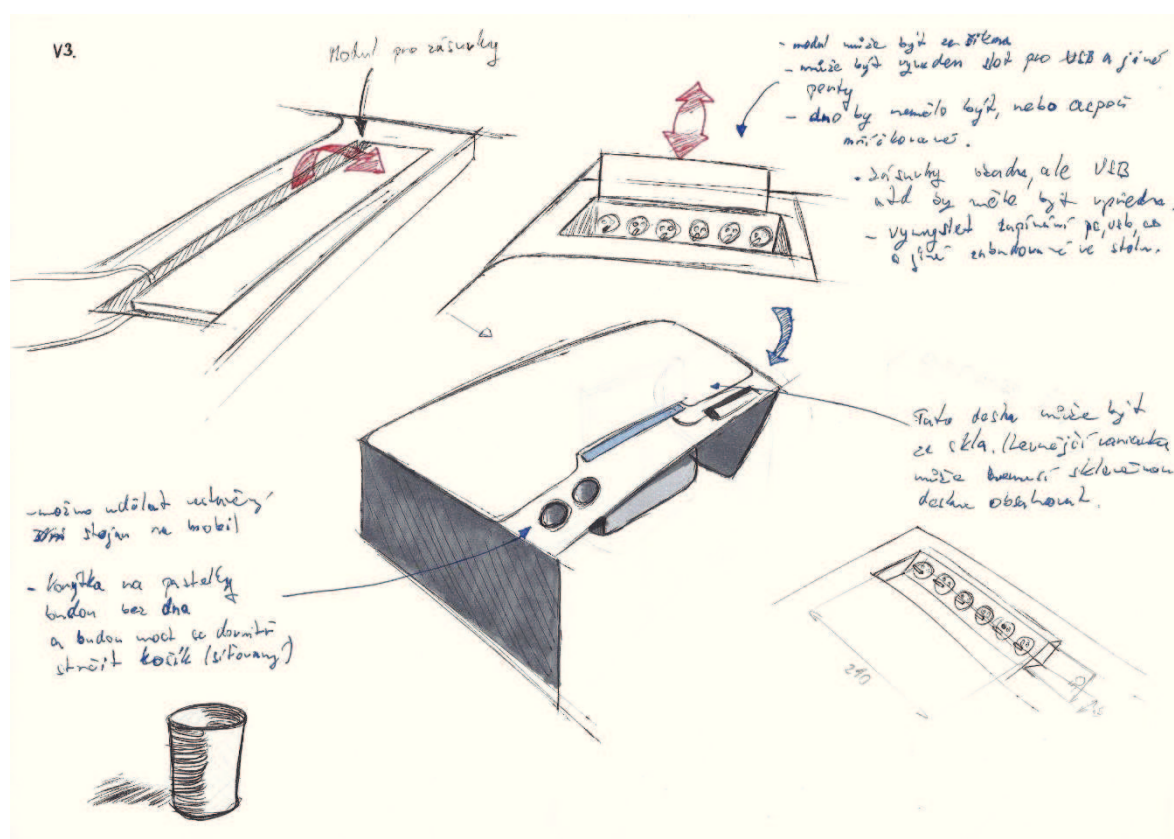 V3.
Modul pro zásuvky
- modul může být
- může být vyveden slot pro USB a jiné
porty
- dno by nemělo být, nebo aspoň
mřížkované.
- zásuvky vzadu, ale USB
atd by měla být vpředu.
- vymyslet zapínání pc, usb,
a jiné zabudované ve stolu.
Tato deska může být
ze skla. (Levnější varianta
může skleněnou
desku obsahovat.
- možno udělat
stojan na mobil
- Korýtka na pastelky
budou bez dna
a budou moct se dovnitř
strčit košík (síťovaný)
210